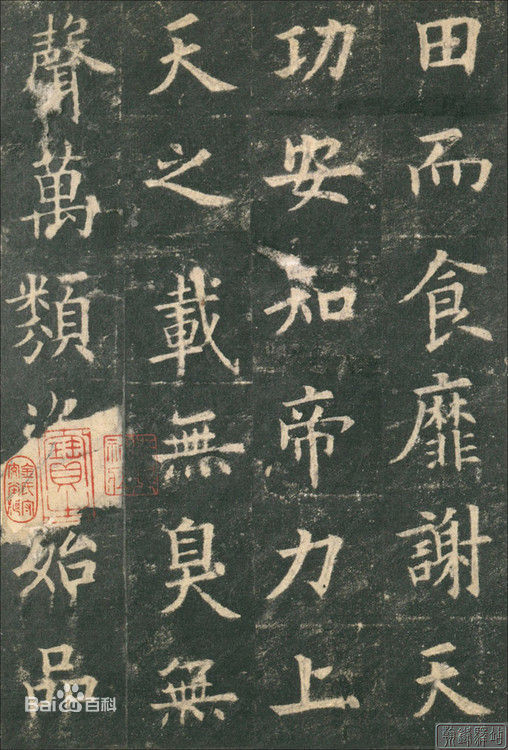 田而食靡謝天
功安知帝力上
天之載無臭無
聲萬類始品
Bai百科